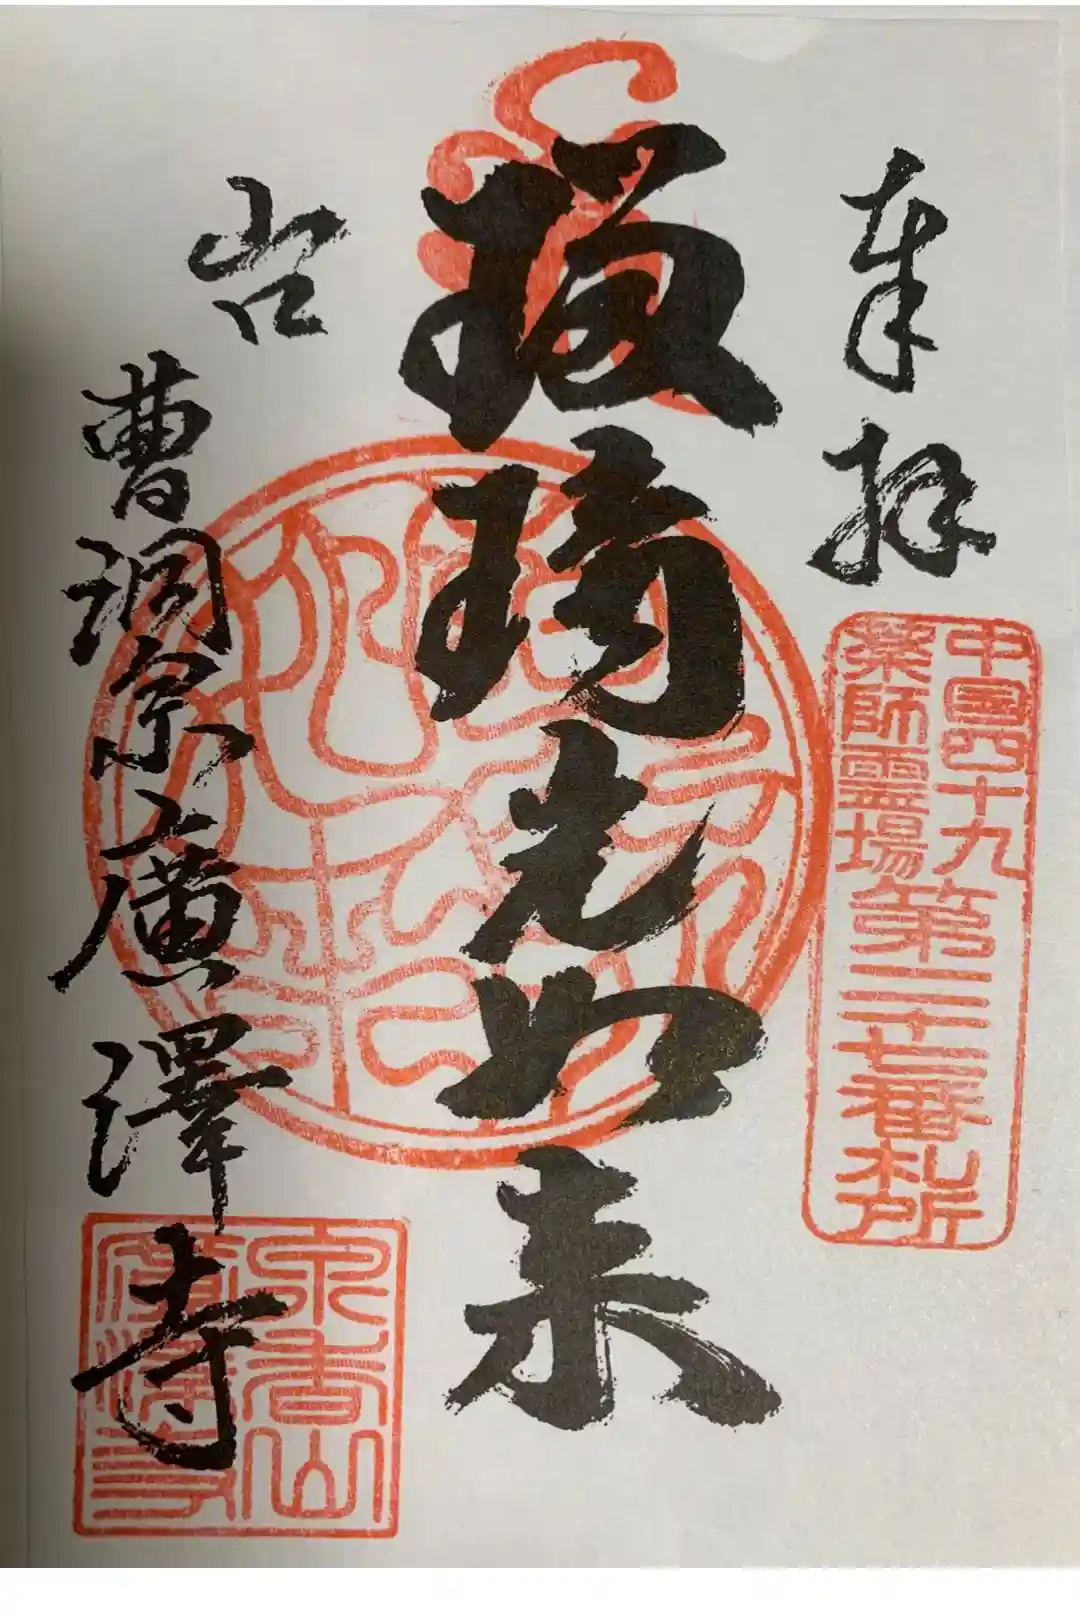 奉拝
中国四十九
薬師霊場
第二十七番札所
瑠璃光如来
山口
曹洞宗廣澤寺
泉香山
廣澤寺